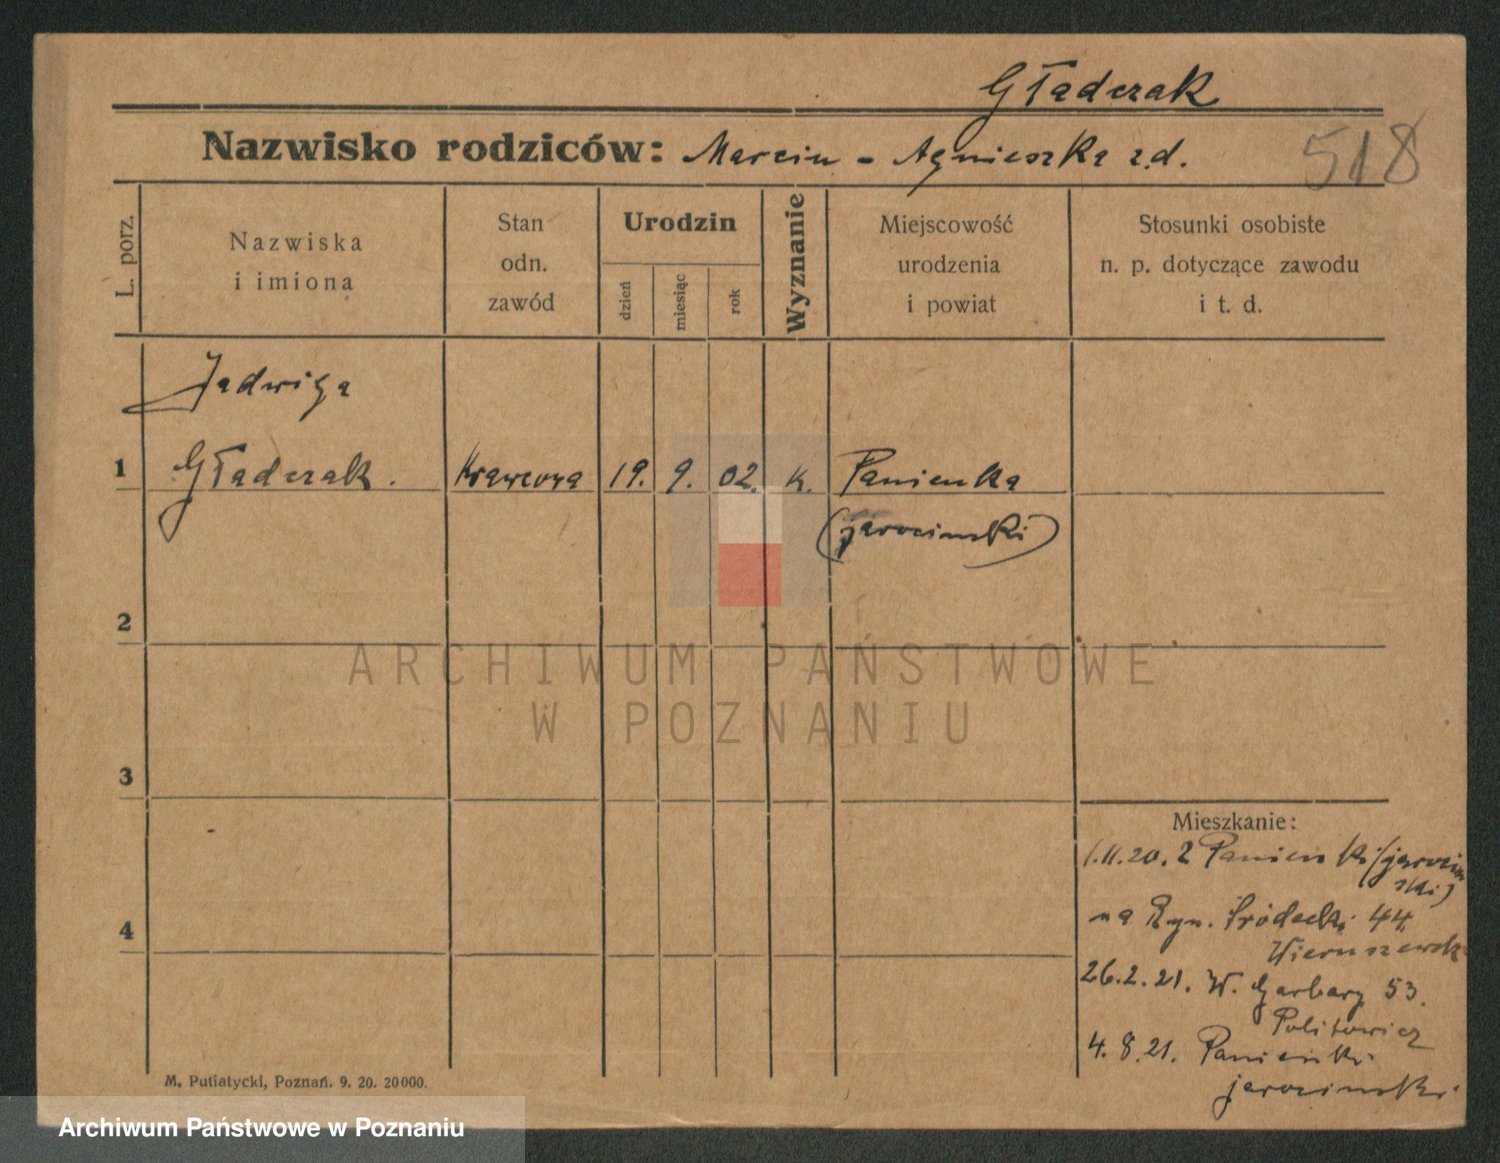 Gładczak
Nazwisko rodziców: Marcin - Agnieszka z.d.
518
L. porz.
Nazwiska
i imiona
Stan
odn.
zawód
Urodzin
dzień
miesiąc
rok
Wyznanie
Miejscowość
urodzenia
i powiat
Stosunki osobiste
n. p. dotyczące zawodu
i t. d.
Jadwiga
1 Gładczak. Krawcowa 19. 9. 02. k. Panienka
(jarocinski)
2
ARCHIWUM PAŃSTWOWE
W POZNANIU
3
Mieszkanie:
1.11.20. z Panienki (jarocin
ski)
na Ryn. Śródecki 44
4
Wieruszewsk
26.2.21. W. Garbary 53.
Politowicz
4.8.21. Panienki
jarocinski
M. Putiatycki, Poznań. 9. 20. 20000.
Archiwum Państwowe w Poznaniu